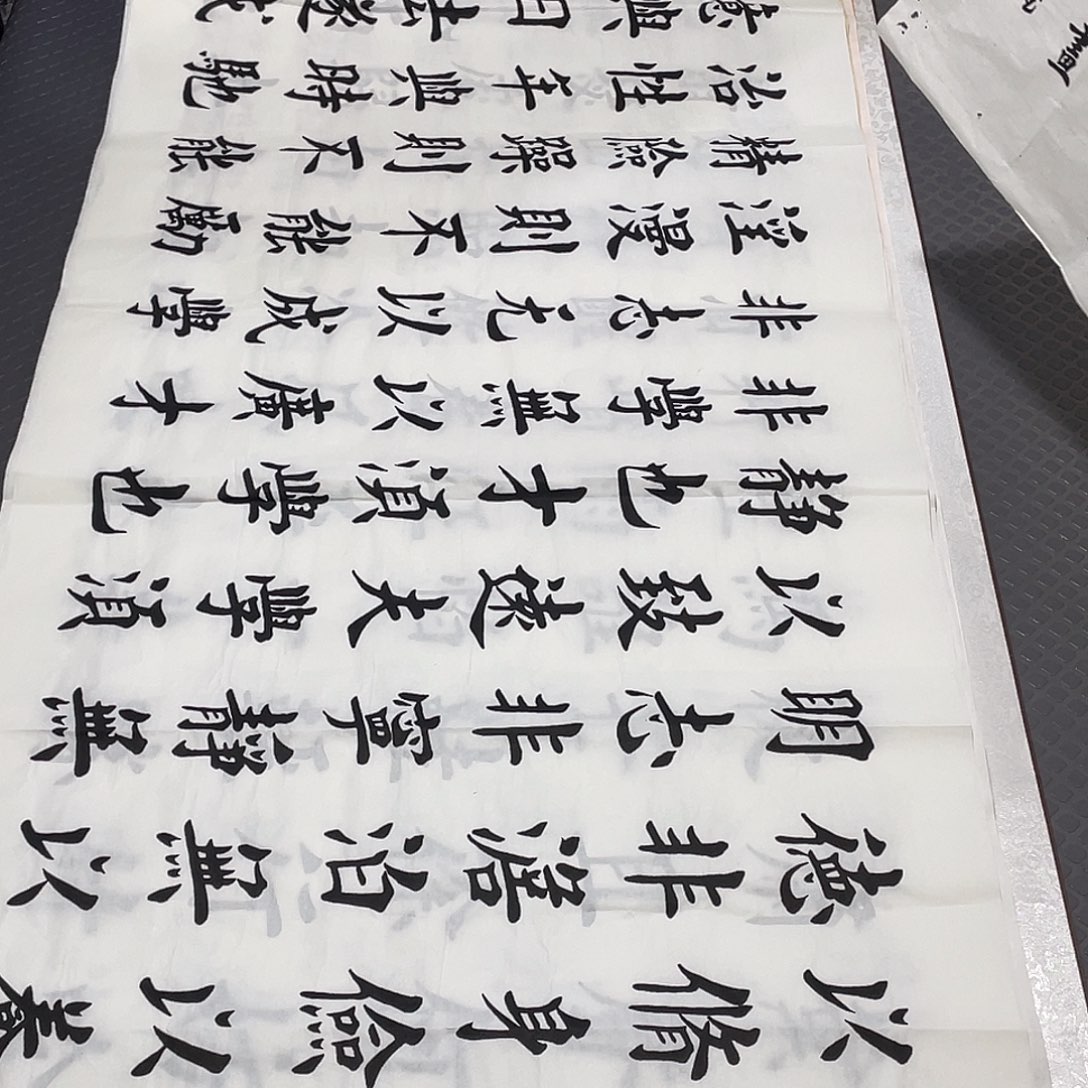 以脩身儉以養
德非澹泊無以
明志非寧靜無
以致遠夫學須
靜也才須學也
非學無以廣才
非志无以成學
淫漫則不能勵
精險躁則不能
治性年與時馳
意與日去遂成